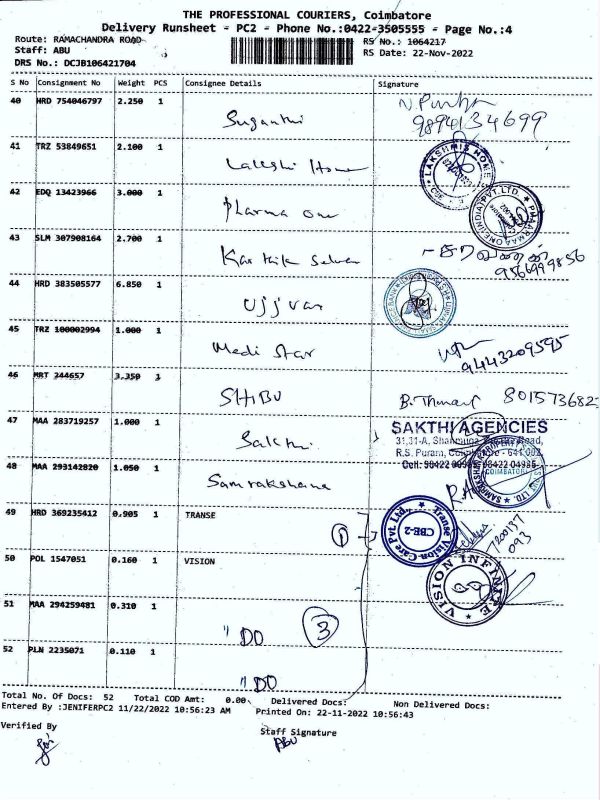 THE PROFESSIONAL COURIERS, Coimbatore
Delivery Runsheet - PC2 - Phone No.:0422-3505555 - Page No.:4
Route: RAMACHANDRA ROAD
RS No.: 1064217
Staff: ABU
RS Date: 22-Nov-2022
DRS No.: DCJB106421704
S No Consignment No Weight PCS Consignee Details Signature
40 HRD 754046797 2.250 1
Suganthi
9894134699
41 TRZ 53849651 2.100 1
Lakshi Home
LAKSHMIS HOME
42 EDQ 13423966 3.000 1
Pharma one
PHAARMAA ONE (INDIA) PVT. LTD.
43 SLM 307908164 2.700 1
Karthik Selvan
9566999856
44 HRD 383505577 6.850 1
Ujjvan
45 TRZ 100002994 1.000 1
Medi Star
9443209595
46 MRT 244657 3.350 1
SHIBU
B. 801573682
47 MAA 283719257 1.000 1
Sakthi
SAKTHI AGENCIES
31,31-A,
R.S. Puram, Coimbatore - 641 002
Cell: 98422
48 MAA 293142820 1.050 1
Samrakshana
49 HRD 369235412 0.905 1 TRANSE
1
Transe Vision Care Pvt. Ltd., CBE-2
7200137
093
50 POL 1547051 0.160 1 VISION
VISION INFINITE
51 MAA 294259481 0.310 1
" DO 3
52 PLN 2235071 0.110 1
" DO
Total No. Of Docs: 52 Total COD Amt: 0.00 Delivered Docs: Non Delivered Docs:
Entered By :JENIFERPC2 11/22/2022 10:56:23 AM Printed On: 22-11-2022 10:56:43
Verified By
Staff Signature
ABU